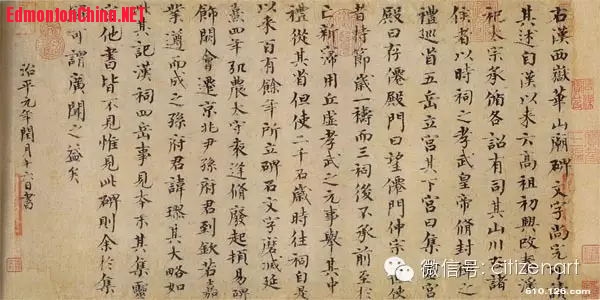 EdmontonChina.NET
右漢西嶽華山廟碑文字尚完
其述自漢以來云高祖初興改秦淫
祀太宗承循各詔有司其山川在諸
侯者以時祠之孝武皇帝脩封
禮巡省五岳立宮其下宮曰集
殿曰存僊殿門曰望僊門仲宗 使
者持節歲一禱而三祠後不承前至於
亡新寖用丘虛孝武之元事舉其中
禮從其省但使二千石歲時往祠自是
以來百有餘年所立碑石文字磨滅延
熹四年弘農太守袁逢脩廢起頓易碑
飾闕會遷京兆尹孫府君到欽若嘉
業遵而成之孫府君諱璆其大略如
此其記漢祠四岳事見本末其集靈
宮他書皆不見惟見此碑則余於集
錄可謂廣聞之益矣
治平元年閏月十六日書
微信号: citizenart
610.126.com